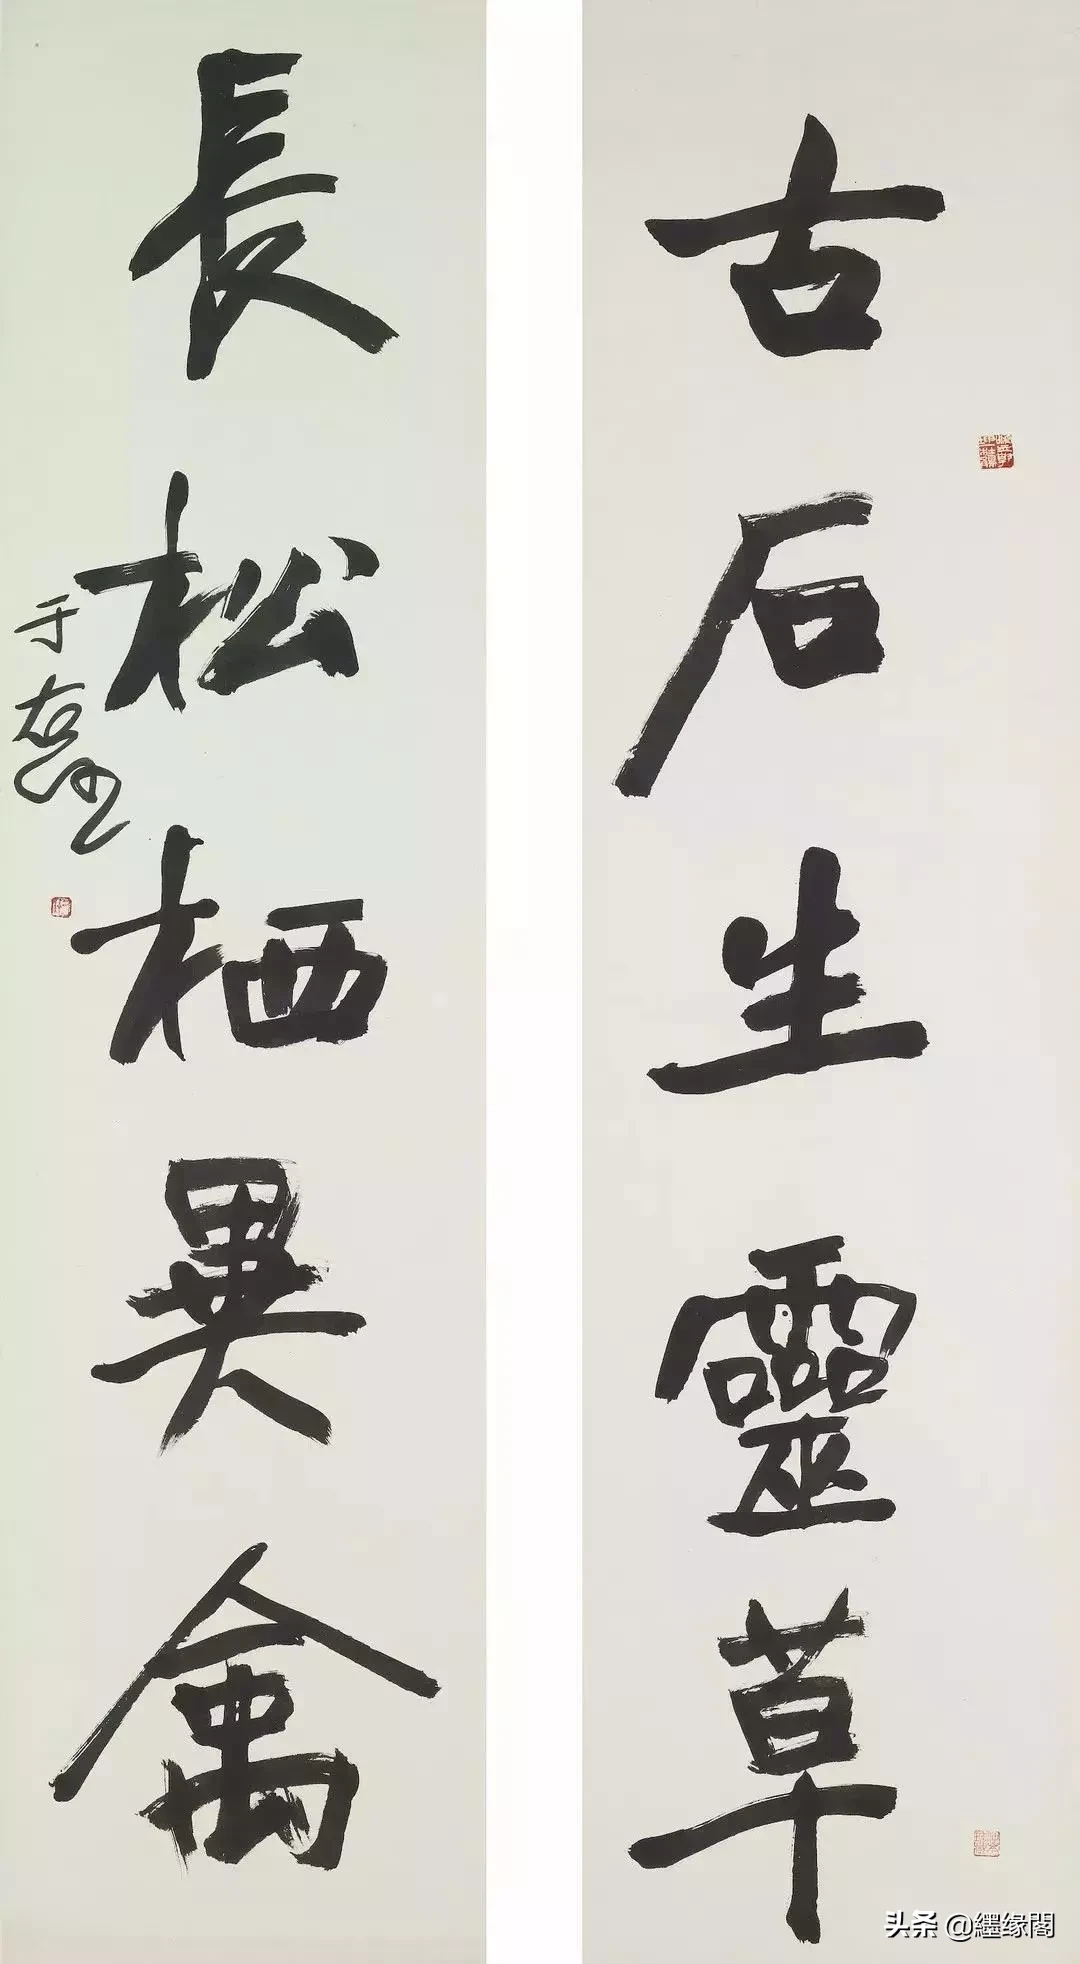 古石生靈草
長松栖異禽
于右任
头条 @纆缘閣